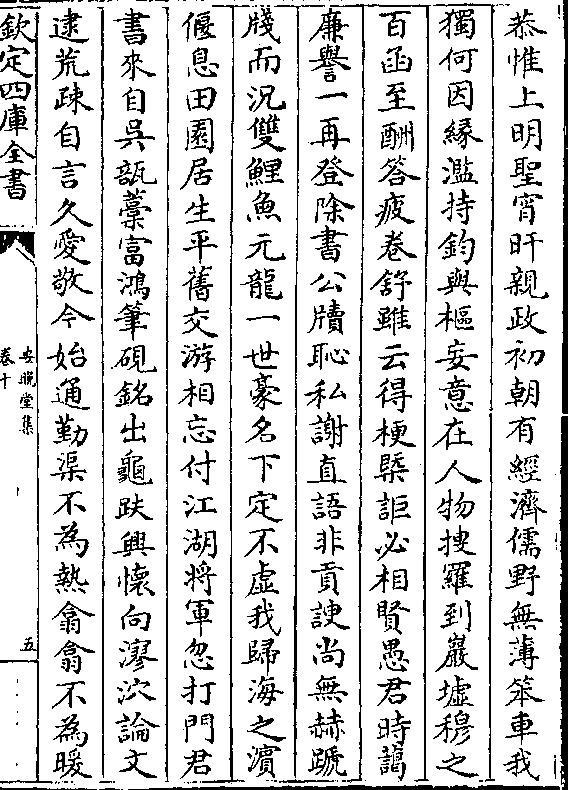 恭惟上明聖宵旰親政初朝有經濟儒野無薄笨車我
獨何因縁濫持鈞與樞妄意在人物搜羅到巖墟穆之
百函至酬答疲卷舒雖云得梗槩詎必相賢愚君時藹
廉譽一再登除書公牘恥私謝直語非貢諛尚無赫蹏
牋而況雙鯉魚元龍一世豪名下定不虛我歸海之濵
偃息田園居生平舊交游相忘付江湖將軍忽打門君
書來自吳瓿藁富鴻筆硯銘出龜趺興懷向漻泬論文
逮荒疎自言久愛敬今始通勤渠不為熱翕翕不為暖
欽定四庫全書
安晚堂集
卷十
五